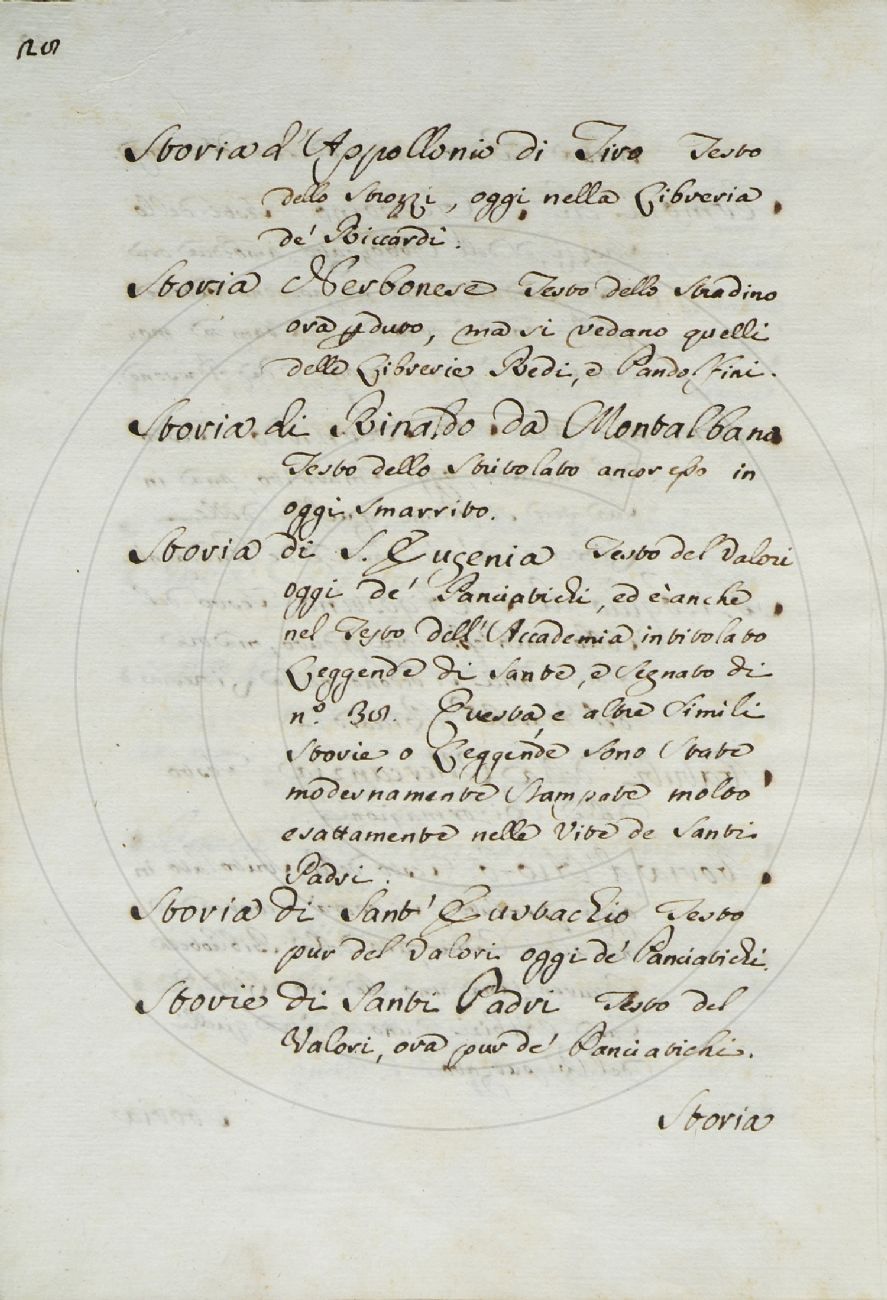 28
Storia d'Appollonio di Tiro Testo
dello Strozzi, oggi nella Libreria
de' Riccardi.
Storia Nerbonese Testo dello Stradino
ora pduto, ma si vedano quelli
delle Librerie Redi, e Pandolfini.
Storia di Rinaldo da Montalbano
Testo dello Stritolato ancor esso in
oggi smarrito.
Storia di S. Eugenia Testo del Valori
oggi de' Panciatichi, ed è anche
nel Testo dell'Accademia intitolato
Leggende di Sante, e Segnato di
n.º 38. Questa, e altre Simili
Storie, o Leggende sono State
modernamente Stampate molto
esattamente nelle Vite de Santi
Padri.
Storia di Sant' Eustachio Testo
pur del Valori oggi de' Panciatichi.
Storie di Santi Padri Testo del
Valori, ora pur de' Panciatichi.
Storia